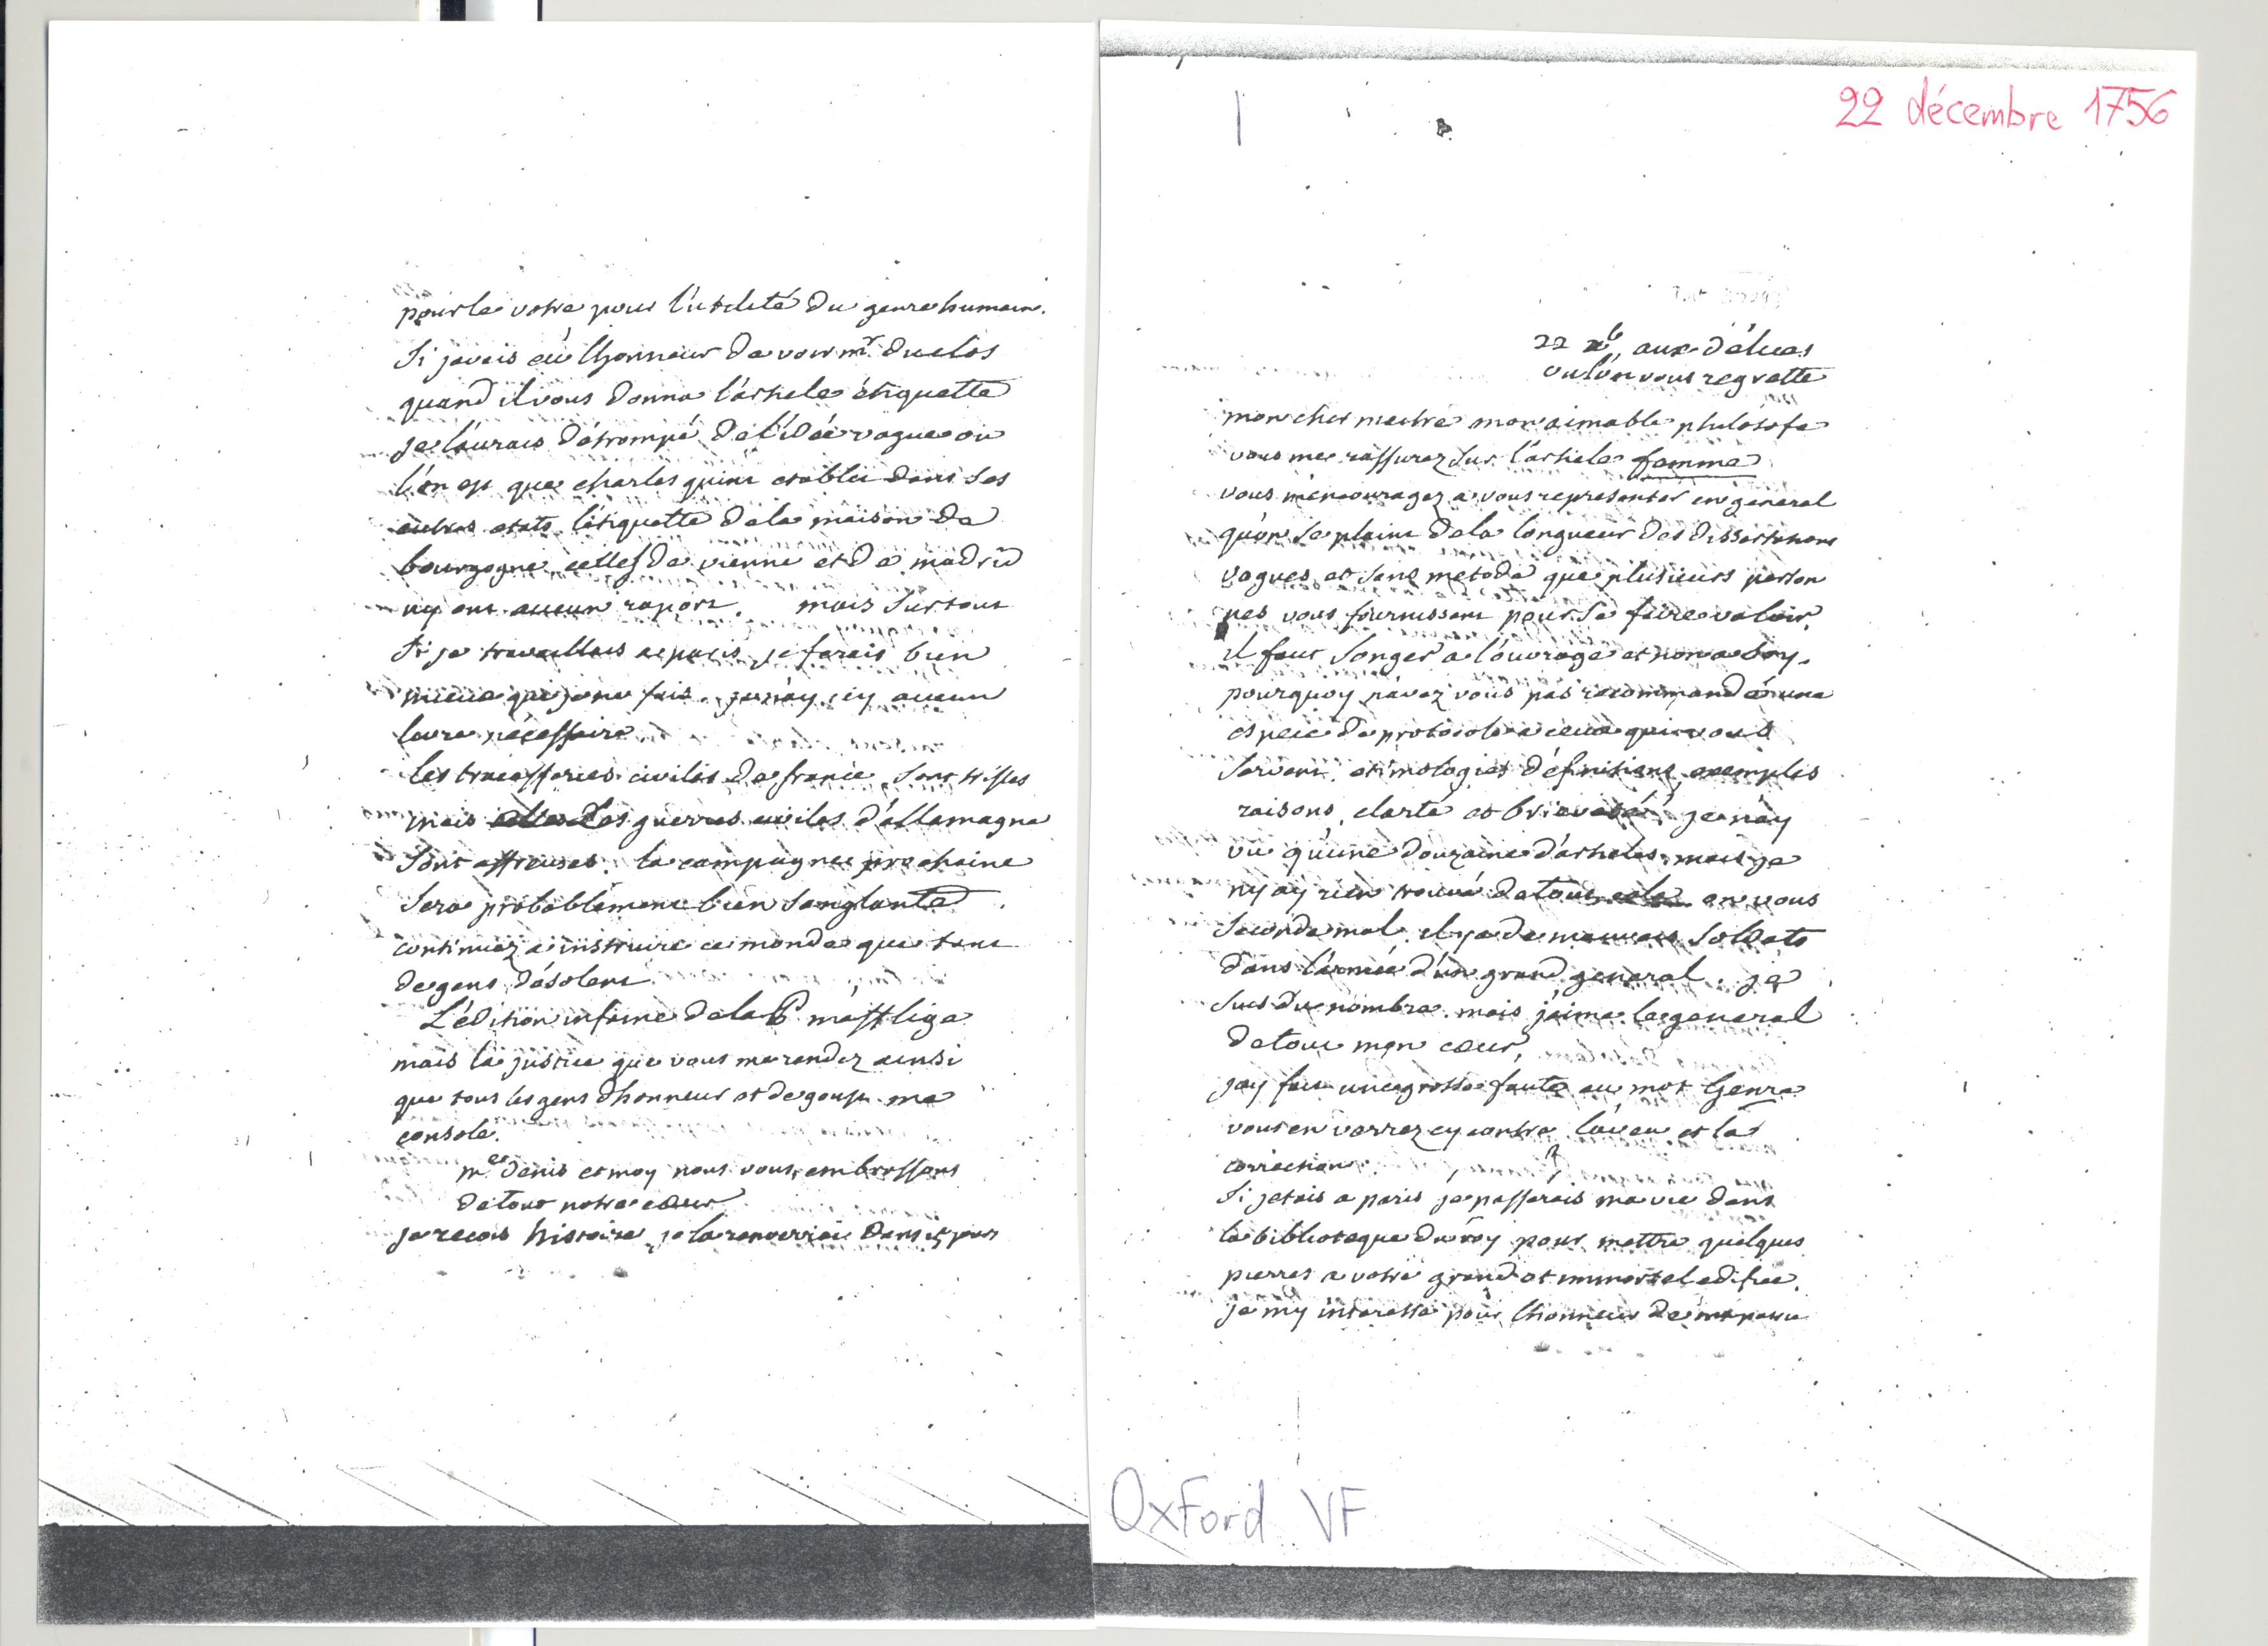 22 décembre 1756
22 xb aux délices
ou l'on vous regrette
mon cher maitre mon aimable philosofe
vous me rassurez sur l'article femme
vous m'encouragez a vous representer en general
qu'on se plaint de la longueur des dissertations
vagues et sans metode que plusieurs person
nes vous fournissent pour se faire valoir.
il faut songer a l'ouvrage et non a soy.
pourquoy n'avez vous pas recommandé une
espece de protocole a ceux qui vous
servent. etimologies définitions exemples
raisons, clarté et brieveté. je n'ay
vu qu'une douzaine d'articles, mais je
ny ay rien trouvé de tout cela on vous
seconde mal. il y a de mauvais soldats
dans l'armée d'un grand general. je
suis du nombre. mais j'aime le general
de tout mon cœur,
jay fait une grosse faute au mot Genre
vous en verrez cy contre l'aveu et la
correction
Si jetois a paris je passerois ma vie dans
la biblioteque du roy pour mettre quelques
pierres a votre grand et immortel edifice.
je my interesse pour lhonneur de ma patrie
Oxford VF
pour le votre pour l'utilité du genre humain.
Si javais eu lhonneur de voir mr. duclos
quand il vous donna l'article étiquette
je l'aurais détrompé de l'idée vague ou
l'on est que charles quint etablit dans ses
autres etats l'étiquette de la maison de
bourgogne celles de vienne et de madrid
ny ont aucun raport. mais surtout
si je travaillais a paris je ferais bien
mieux que je ne fais. je n'ay icy aucun
livre nécessaire
les tracasseries civiles de france sont tristes
mais les guerres civiles d'allemagne
sont affreuses. la campagne prochaine
sera probablement bien sanglante
continuez a instruire ce monde que tant
de gens désolent
L'édition infame de la P. m'afflige
mais la justice que vous me rendez ainsi
que tous les gens dhonneur et de goust me
console.
me denis et moy nous vous embrassons
de tout notre cœur
je recois histoire je la renverrai dans 15 jours